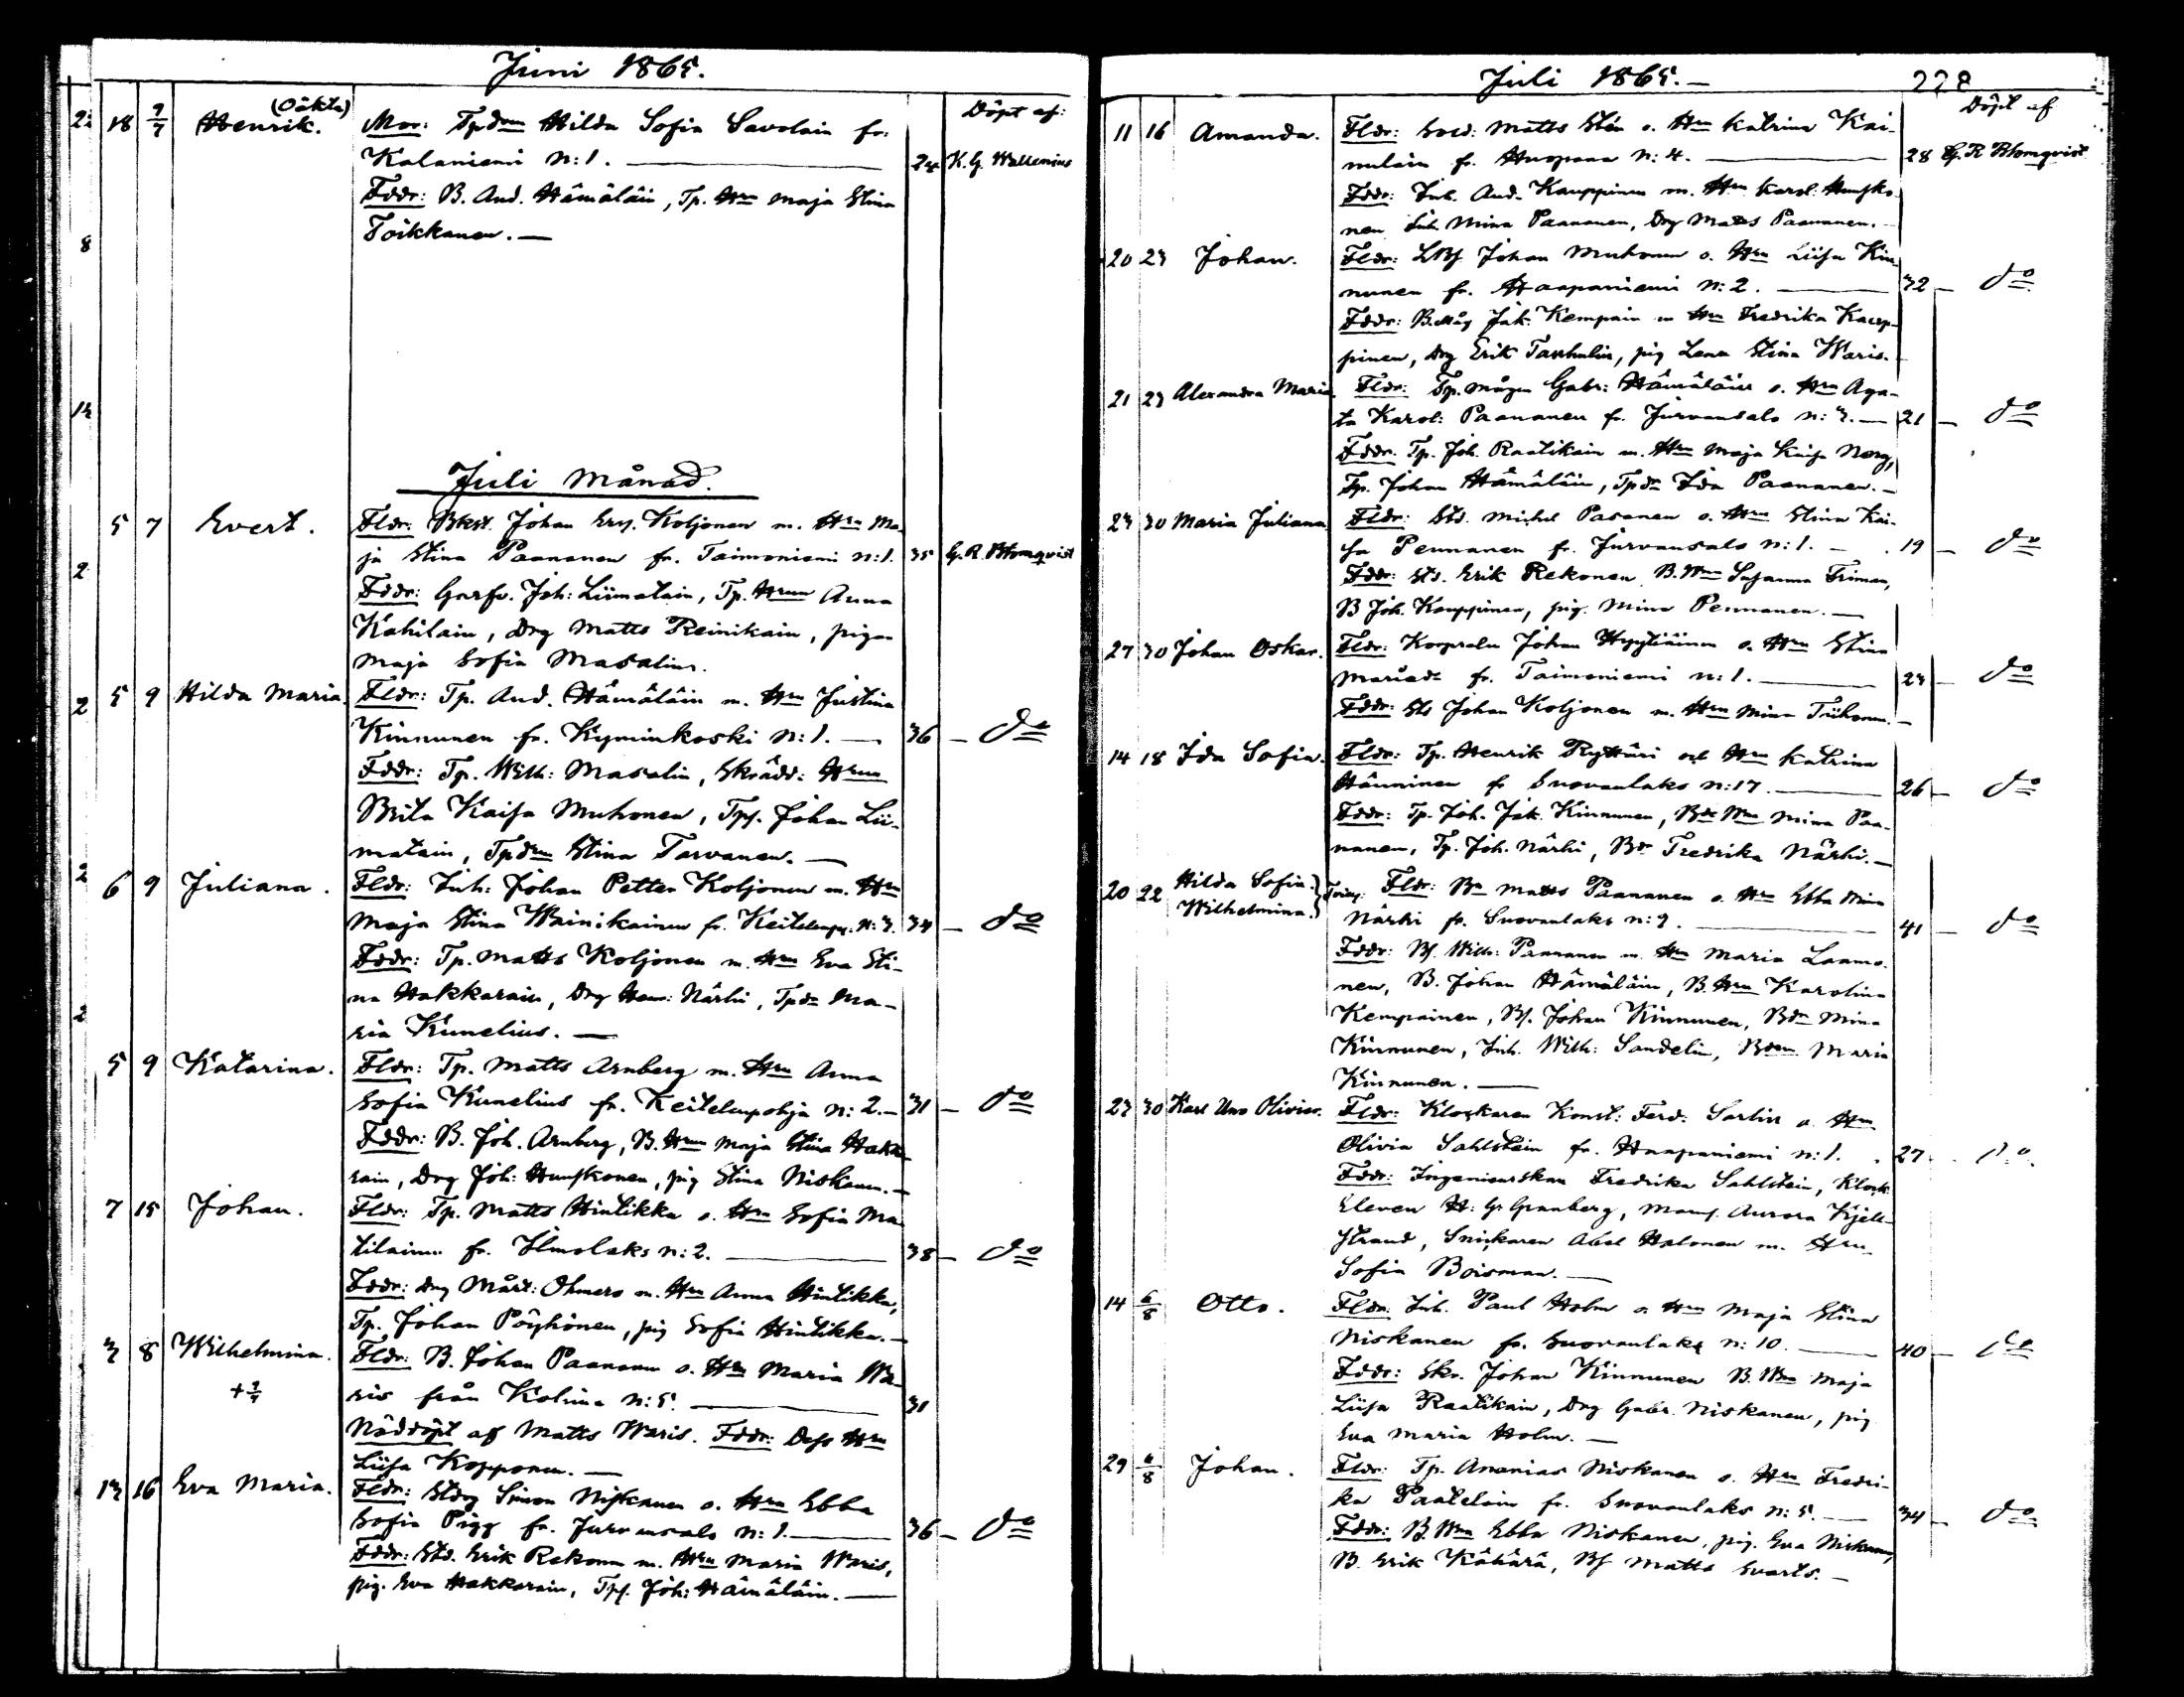 Juni 1865.
Döpt af:
18 2/7 Henrik. (Oäkta) Mor: Tpdrn Hilda Sofia Savolain fr.
Kalaniemi N:1. — 24 K. G. Wallenius
Fddr: B. And. Hämäläin, Tp. Hru Maja Stina
Toikkanen. —
Juli Månad.
5 7 Evert. Fldr: Johan Koljonen m. Hru Ma-
ja Stina Paananen fr. Taimoniemi n:1. 35 G. R. Blomqvist
Fddr: Joh: Liimatain, Tp. Hrun Anna
Kahilain, Drg Matts Reinikain, pigan
Maja Sofia Masalin.
5 9 Hilda Maria. Fldr: Tp. And. Hämäläin m. Hru Justina
Kinnunen fr. Kyminkoski N:1. — 36 — do
Fddr: Tp. Wilh: Masalin, Skrädd: Hrun
Brita Kaisa Muhonen, Tps. Johan Lii-
matain, Tpdrn Stina Tarvanen. —
6 9 Juliana. Fldr: Inh: Johan Petter Koljonen m. Hru
Maja Stina Wainikainen fr. Keitelenp. N:3. 34 — do
Fddr: Tp. Matts Koljonen m. Hru Eva Sti-
na Hakkarain, Drg Henr: Närhi, Tpdr Ma-
ria Kunelius. —
5 9 Katarina. Fldr: Tp. Matts Arnberg m. Hru Anna
Sofia Kunelius fr. Keitelenpohja n:2. — 31 — do
Fddr: B. Joh. Arnberg, B. Hrun Maja Stina Hakka-
rain, Drg Joh: Huuskonen, pig Stina Niskanen. —
7 15 Johan. Fldr: Tp. Matts Hintikka o. Hru Sofia Ma-
tilainen fr. Ilmolaks n:2. — 38 — do
Fddr: Drg Mårt: Ohmero m. Hru Anna Hintikka,
Tp. Johan Pöyhönen, pig Sofia Hintikka. —
3 8 Wilhelmina. Fldr: B. Johan Paananen o. Hru Maria Wa-
ris från Kolima n:5. — 31
Nöddöpt af Matts Waris. Fddr: Dess Hru
Liisa Kopponen. —
13 16 Eva Maria. Fldr: Stdrg Simon Niskanen o. Hru Ebba
Sofia Pigg fr. Jurvansalo n:1. — 36 — do
Fddr: Std. Erik Rekonen m. Hru Maria Waris,
pig. Eva Hakkarain, Tps. Joh: Hämäläin. —
Juli 1865. — 228
Döpt af
11 16 Amanda. Fldr: Sold: Matts Stén o. Hru Katrina Kai-
nulain fr. Huopana N:4. — 28 G. R. Blomqvist
Fddr: Inh. And. Kauppinen m. Hru Karol. Huusko-
nen Inh. Mina Paananen, Drg Matts Paananen.
20 23 Johan. Fldr: Johan Muhonen o. Hru Liisa Kin-
nunen fr. Haapaniemi N:2. — 32 — do
Fddr: B.måg Jak. Kempain m Hru Fredrika Kaup-
pinen, Drg Erik Tarhulin, pig Lena Stina Waris.
21 23 Alexandra Maria. Fldr: Tp. mågen Gabr: Hämäläin o. Hru Aga-
ta Karol: Paananen fr. Jurvansalo n:3. — 21 — do
Fddr. Tp. Joh. Raatikain m. Hru Maja Kaisa Norg,
Tp. Johan Hämäläin, Tpdr Ida Paananen. —
23 30 Maria Juliana Fldr: Std. Michel Pasanen o. Hru Stina Kai-
sa Pennanen fr. Jurvansalo n:1. — 19 — do
Fddr: Std. Erik Rekonen, B. Hru Susanna Friman,
B Joh. Kauppinen, pig. Mina Pennanen. —
27 30 Johan Oskar. Fldr: Korpralen Johan Hyytiäinen o. Hru Stina
fr. Taimoniemi n:1. — 23 — do
Fddr: Std Johan Koljonen m. Hru Mina Tiihonen. —
14 18 Ida Sofia. Fldr: Tp. Henrik Ryttäri och Hru Katrina
Hänninen fr Suovanlaks n:17. — 26 — do
Fddr: Tp. Joh. Jak. Kinnunen, Bde Hru Mina Paa-
nanen, Tp. Joh. Närhi, Bdr Fredrika Närhi. —
20 22 Hilda Sofia. Wilhelmina. } Tvill. Fldr: Bn Matts Paananen o. Hru Ebba Mina
Närhi fr. Suovanlaks n:9. — 41 — do
Fddr: Bs. Wilh: Paananen m. Hru Maria Laamo-
nen, B. Johan Hämäläin, B. Hru Karolina
Kempainen, Bs. Johan Kinnunen, Bdr Mina
Kinnunen, Inh. Wilh: Sandelin, Maria
Kinnunen. —
23 30 Karl Uno Olivier. Fldr: Klockaren Konst: Ferd: Sarlin o. Hru
Olivia Sahlstein fr. Haapaniemi n:1. 27 — do
Fddr: Ingenieurskan Fredrika Sahlstein, Klock-
Eleven H: G. Granberg, Mams. Aurora Kjell-
strand, Snickaren Abel Halonen m. Hru
Sofia Boisman. —
14 6/8 Otto. Fldr. Inh. Paul Holm o. Hru Maja Stina
Niskanen fr. Suovanlaks n:10. — 40 — do
Fddr: Skr. Johan Kinnunen B. Hru Maja
Liisa Raatikain, Drg Gabr. Niskanen, pig
Eva Maria Holm. —
29 6/8 Johan. Fldr: Tp. Ananias Niskanen o. Hru Fredri-
ka Paatelain fr. Suovanlaks n:5. — 34 — do
Fddr: B. Hru Ebba Niskanen, pig. Eva Niskanen,
B. Erik Kähärä, Bs Matts Evarts. —